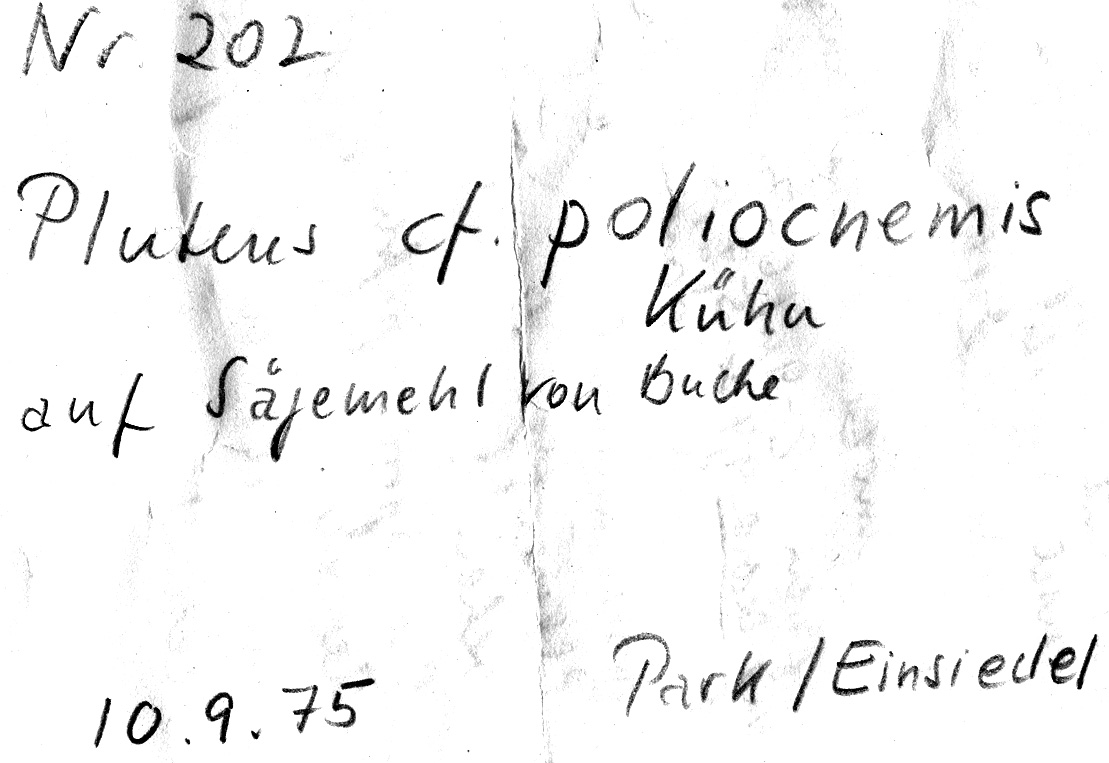 Nr. 202
Pluteus cf. poliocnemis
Kühn
auf Sägemehl von Buche
10.9.75
Park / Einsiedel